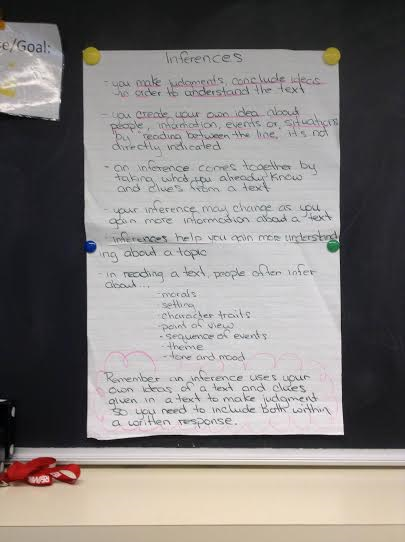 e/Goal:
Inferences
- you make judgments, conclude ideas
in order to understand the text
- you create your own idea about
people, information, events or situations
by "reading between the line," it's not
directly indicated
- an inference comes together by
taking what you already know
and clues from a text
- your inference may change as you
gain more information about a text
- inferences help you gain more understand
ing about a topic
- in reading a text, people often infer
about...
- morals
- setting
- character traits
- point of view
- sequence of events
- theme
- tone and mood
Remember an inference uses your
own ideas of a text and clues
given in a text to make judgment
so you need to include both within
a written response.